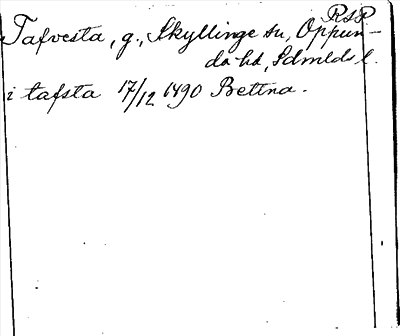 RSP
Tafvesta, g., Skyllinge sn, Oppun-
da hd, Sdmlds l.
i tafsta 17/12 1490 Bettna.